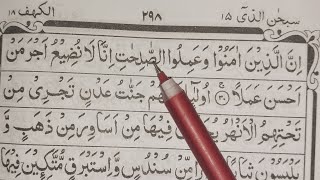 الكهف ١٨ ٢٩٨ سبحن الذى ١٥
اِنَّ الَّذِيْنَ اٰمَنُوْا وَعَمِلُوا الصّٰلِحٰتِ اِنَّا لَا نُضِيْعُ اَجْرَ مَنْ
اَحْسَنَ عَمَلًا ۝٣٠ اُولٰٓئِكَ لَهُمْ جَنّٰتُ عَدْنٍ تَجْرِىْ مِنْ
تَحْتِهِمُ الْاَنْهٰرُ يُحَلَّوْنَ فِيْهَا مِنْ اَسَاوِرَ مِنْ ذَهَبٍ وَّ
يَلْبَسُوْنَ ثِيَابًا مِّنْ سُنْدُسٍ وَّاِسْتَبْرَقٍ مُّتَّكِـِٕيْنَ فِيْهَا